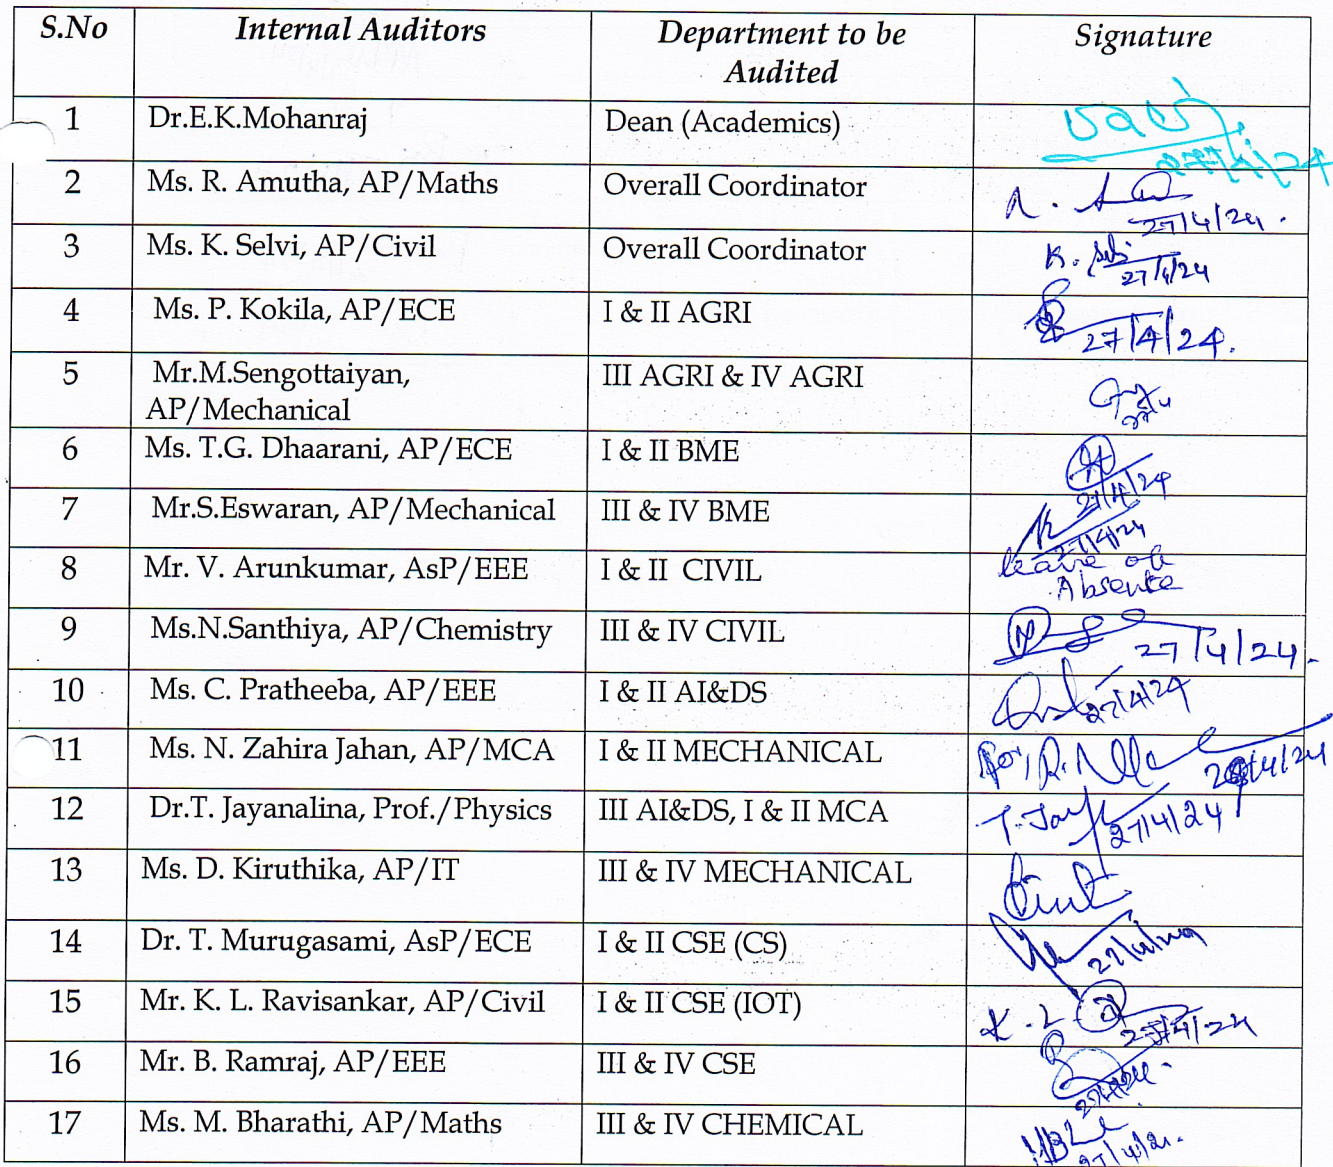 S.No Internal Auditors Department to be Audited Signature
1 Dr.E.K.Mohanraj Dean (Academics)
27/4/24
2 Ms. R. Amutha, AP/Maths Overall Coordinator
27/4/24.
3 Ms. K. Selvi, AP/Civil Overall Coordinator K.
27/4/24
4 Ms. P. Kokila, AP/ECE I & II AGRI
27/4/24.
5 Mr.M.Sengottaiyan, III AGRI & IV AGRI
AP/Mechanical
6 Ms. T.G. Dhaarani, AP/ECE I & II BME
27/4/24
7 Mr.S.Eswaran, AP/Mechanical III & IV BME
27/4/24
8 Mr. V. Arunkumar, AsP/EEE I & II CIVIL leave of
Absente
9 Ms.N.Santhiya, AP/Chemistry III & IV CIVIL 27/4/24.
10 Ms. C. Pratheeba, AP/EEE I & II AI&DS 27/4/24
11 Ms. N. Zahira Jahan, AP/MCA I & II MECHANICAL
12 Dr.T. Jayanalina, Prof./Physics III AI&DS, I & II MCA 27/4/24
13 Ms. D. Kiruthika, AP/IT III & IV MECHANICAL
14 Dr. T. Murugasami, AsP/ECE I & II CSE (CS)
15 Mr. K. L. Ravisankar, AP/Civil I & II CSE (IOT) K.L
27/4/24
16 Mr. B. Ramraj, AP/EEE III & IV CSE
17 Ms. M. Bharathi, AP/Maths III & IV CHEMICAL